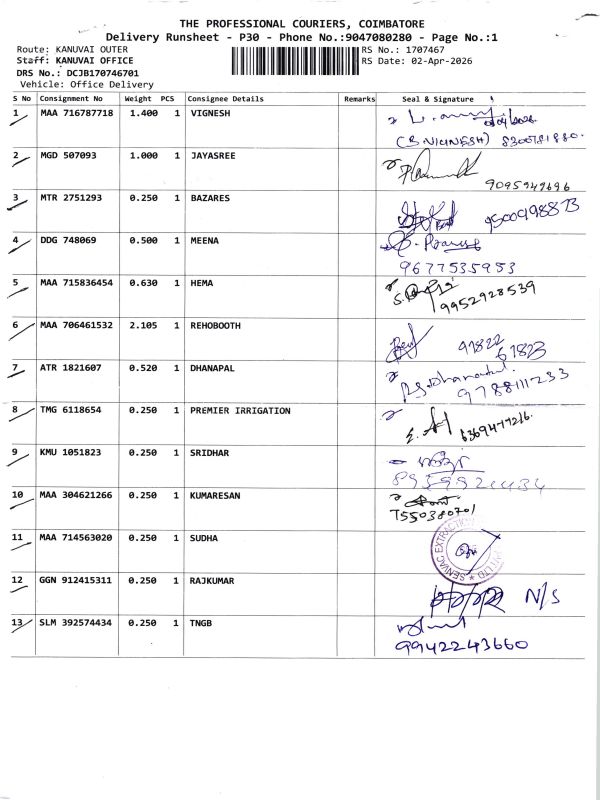 THE PROFESSIONAL COURIERS, COIMBATORE
Delivery Runsheet - P30 - Phone No.:9047080280 - Page No.:1
Route: KANUVAI OUTER
RS No.: 1707467
Staff: KANUVAI OFFICE
RS Date: 02-Apr-2026
DRS No.: DCJB170746701
Vehicle: Office Delivery
S No Consignment No Weight PCS Consignee Details Remarks Seal & Signature
1 MAA 716787718 1.400 1 VIGNESH
(S.VIGNESH) 8300781880.
2 MGD 507093 1.000 1 JAYASREE
9095949696
3 MTR 2751293 0.250 1 BAZARES
9500498873
4 DDG 748069 0.500 1 MEENA
9677535953
5 MAA 715836454 0.630 1 HEMA
9952928539
6 MAA 706461532 2.105 1 REHOBOOTH
97822
61823
7 ATR 1821607 0.520 1 DHANAPAL
9788111233
8 TMG 6118654 0.250 1 PREMIER IRRIGATION
6369477216.
9 KMU 1051823 0.250 1 SRIDHAR
8939921434
10 MAA 304621266 0.250 1 KUMARESAN
7550380701
11 MAA 714563020 0.250 1 SUDHA
SENVAC EXTRACTION PVT LTD
12 GGN 912415311 0.250 1 RAJKUMAR
N/S
13 SLM 392574434 0.250 1 TNGB
9942243660